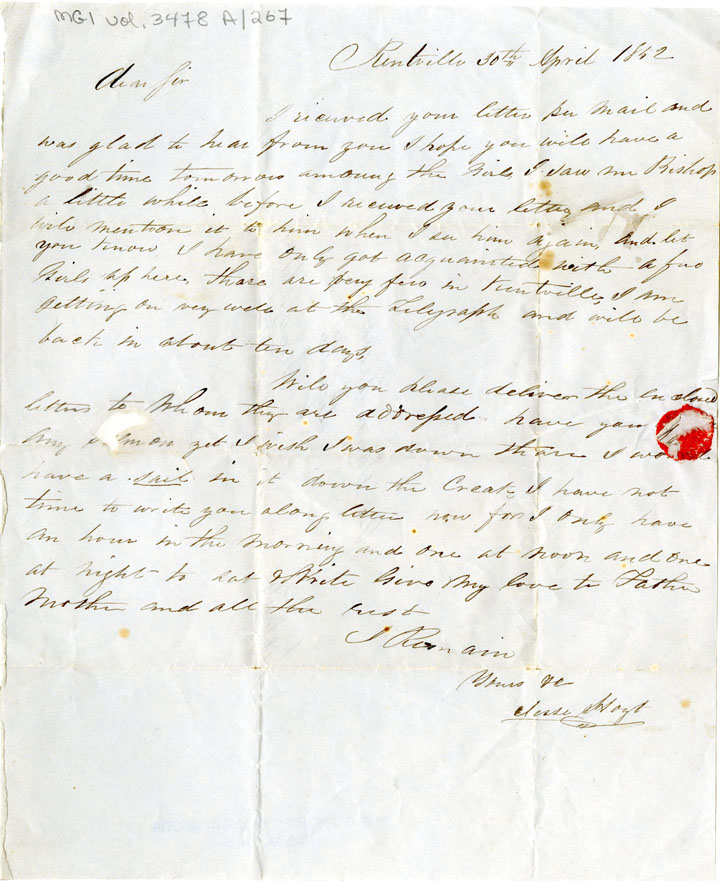 MG1 vol. 3478 A/267
Kentville 30th April 1852
Dear Sir
I received your letter per Mail and
was glad to hear from you I hope you will have a
good time tomorrow among the Girls, I saw Mr Bishop
a little while before I received your letter, and I
will mention it to him when I see him again, and let
you know I have only got acquainted with a few
Girls up here, thare are very few in Kentville, I am
getting on very well at the Telegraph and will be
back in about ten days,
Will you please deliver the enclosed
letters to whom they are addressed have you
any yet I wish I was down thare I would
have a sail in it down the Creak, I have not
time to write you along letter now for I only have
an hour in the morning and one at noon and one
at night to eat & Write Give My love to Father
Mother and all the rest
I Remain
Yours &c
Jesse Hoyt